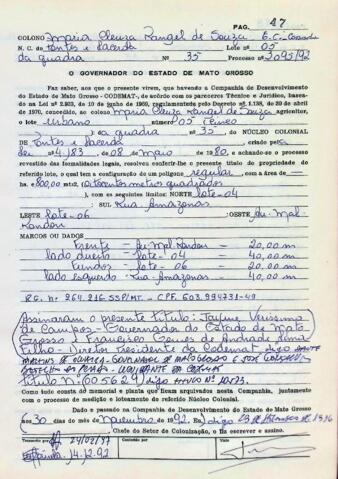 PAG. 47
COLONO Maria Cleuza Rangel de Souza
N. C. de Pontes e Lacerda Lote nº 05
da quadra Nº 35 Processo 3095/92
O GOVERNADOR DO ESTADO DE MATO GROSSO
Faz saber, aos que o presente virem, que havendo a Companhia de Desenvolvimento
do Estado de Mato Grosso - CODEMAT-, de acordo com os pareceres Técnico e Jurídico, baseados
na Lei nº 2.923, de 10 de junho de 1969, regulamentada pelo Decreto nº 1.138, de 29 de abril
de 1970, concedido, ao colono Maria Cleuza Rangel de Souza agricultor,
o lote Urbano número 05 (Cinco)
da quadra nº 35 DO NÚCLEO COLONIAL
DE Pontes e Lacerda criado pela
Lei 4.183 de 08 de maio de 1980, e achando-se o processo
revestido das formalidades legais, resolveu conferir-lhe o presente título de propriedade
do referido lote, o qual tem a configuração de um polígono regular com a área de
800,00 m2 (oitocentos metros quadrados)
com os seguintes limites: NORTE lote-04
SUL Rua Amazonas
LESTE lote-06 OESTE Av. Mal.
Rondon
MARCOS OU DADOS
frente - Av. Mal. Rondon - 20,00 m
lado direito - lote-04 - 40,00 m
fundos - lote-06 - 20,00 m
lado esquerdo - Rua Amazonas - 40,00 m
R.G. nº 264.216 SSP/MT. - CPF. 603.994.231-49
Assinaram o presente título: Jayme Veríssimo
de Campos - Governador do Estado de Mato
Grosso e Francisco Gomes de Andrade Lima
Filho - Diretor Presidente da Codemat. digo DANTE
MARTINS DE OLIVEIRA GOVERNADOR DE MATO GROSSO E JOSÉ
título Nº 005629 digo
Como tudo consta de memorial e planta que ficam arquivados nesta Companhia, juntamente
com o processo de medição e loteamento do referido Núcleo Colonial.
Dado e passado na Companhia de Desenvolvimento do Estado de Mato Grosso
aos 30 dias do mês de novembro de 1992. Eu, digo
Chefe do Setor de Colonização, o fiz escrever e assino.
24/02/97
14.12.92